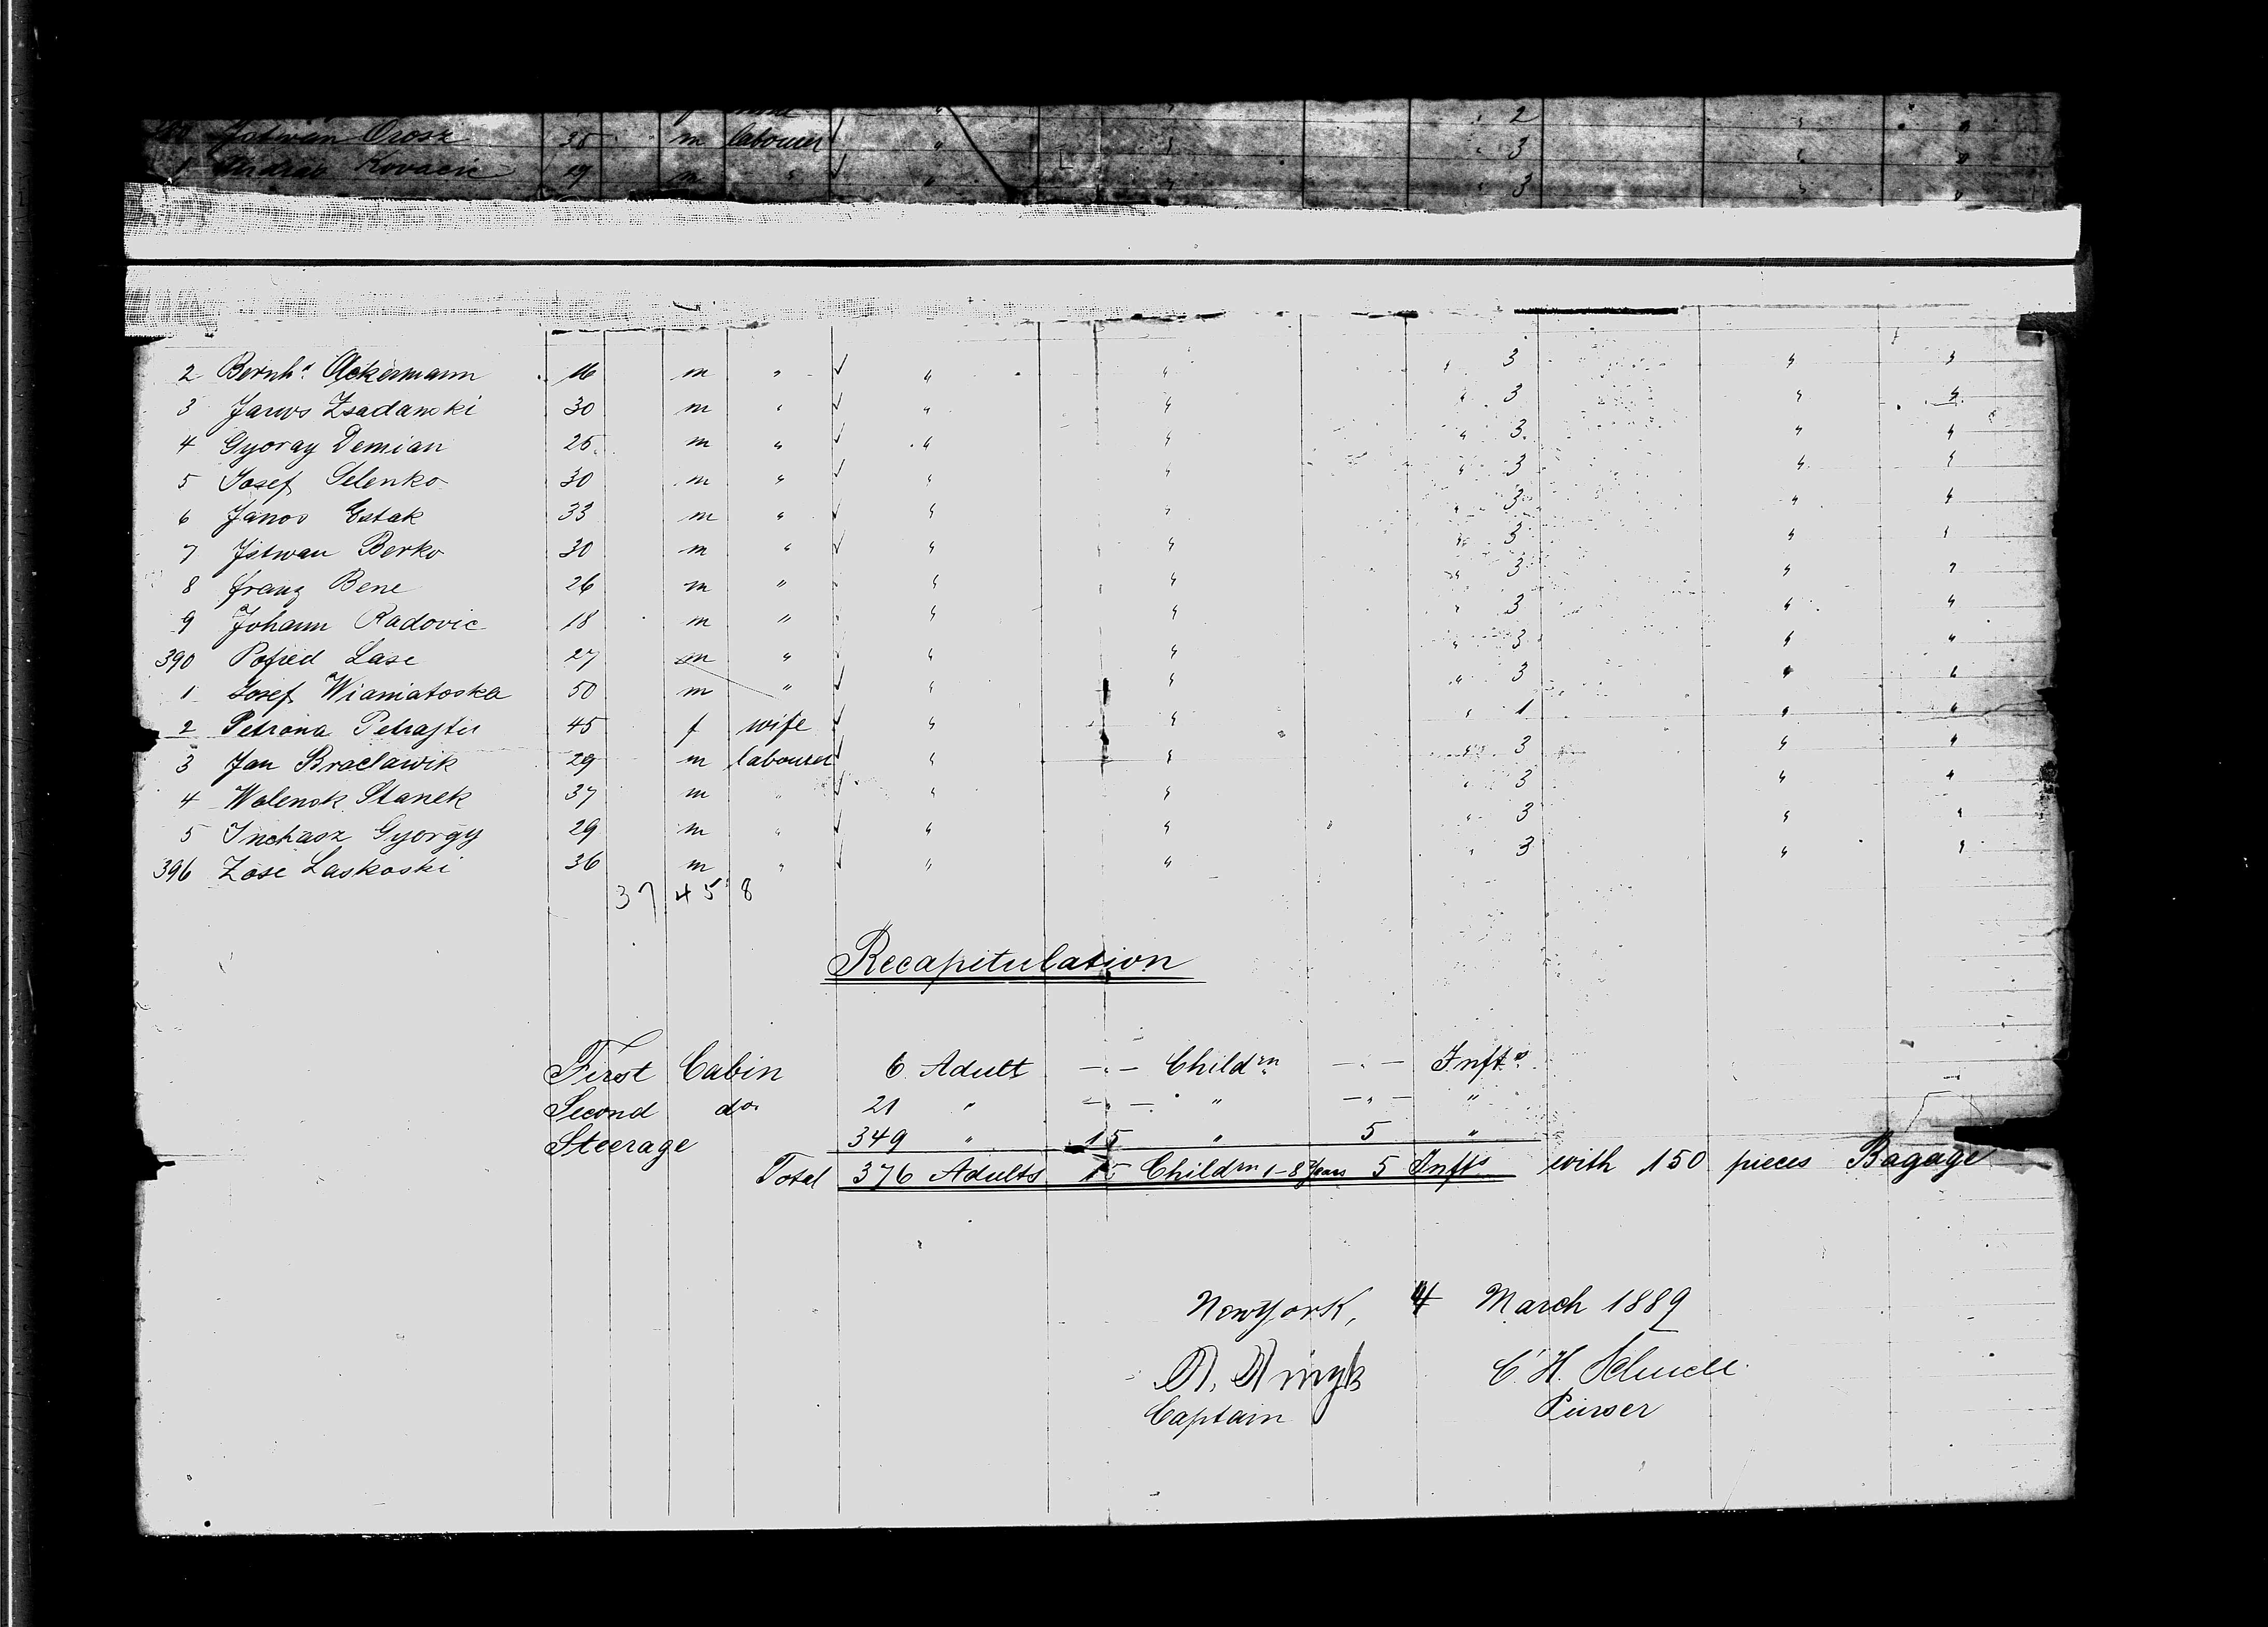 2
Istwan Orosz 38 " m labourer " " " 3 " "
1 Andras Kovacic 19 m " " " " 3 " "
2 Bernhd Ackermann 16 m " ✓ " " " 3 " "
3 Janos Zsadanski 30 m " ✓ " " " 3 " "
4 Gyoray Demian 25 m " ✓ " " " 3 " "
5 Josef Selenko 30 m " ✓ " " " 3 " "
6 Janos Estak 33 m " ✓ " " " 3 " "
7 Istwan Berko 30 m " ✓ " " " 3 " "
8 Franz Bene 26 m " " " " 3 " "
9 Johann Radovic 18 m " " " " 3 " "
390 Pofied Lase 27 m " " " " 3 " "
1 Josef Wianiatoska 50 m " ✓ " " " 3 " "
2 Petrona 45 f wife ✓ " " " 1 " "
3 Jan Braclawik 29 m labourer ✓ " " " 3 " "
4 Walensk Stanek 37 m " ✓ " " " 3 " "
5 Inchasz Gyorgy 29 m " ✓ " " " 3 " "
396 Zose Laskoski 36 m " ✓ " " " 3 " "
37 45 8
Recapitulation
First Cabin 6 Adult -.- Childrn -.- Infts
Second do. 21 " -.- " -.- "
Steerage 349 " 15 " 5 "
Total 376 Adults 15 Childrn 1-8 Years 5 Infts with 150 pieces Bagage
New York, 4 March 1889
C. H.
Captain Purser